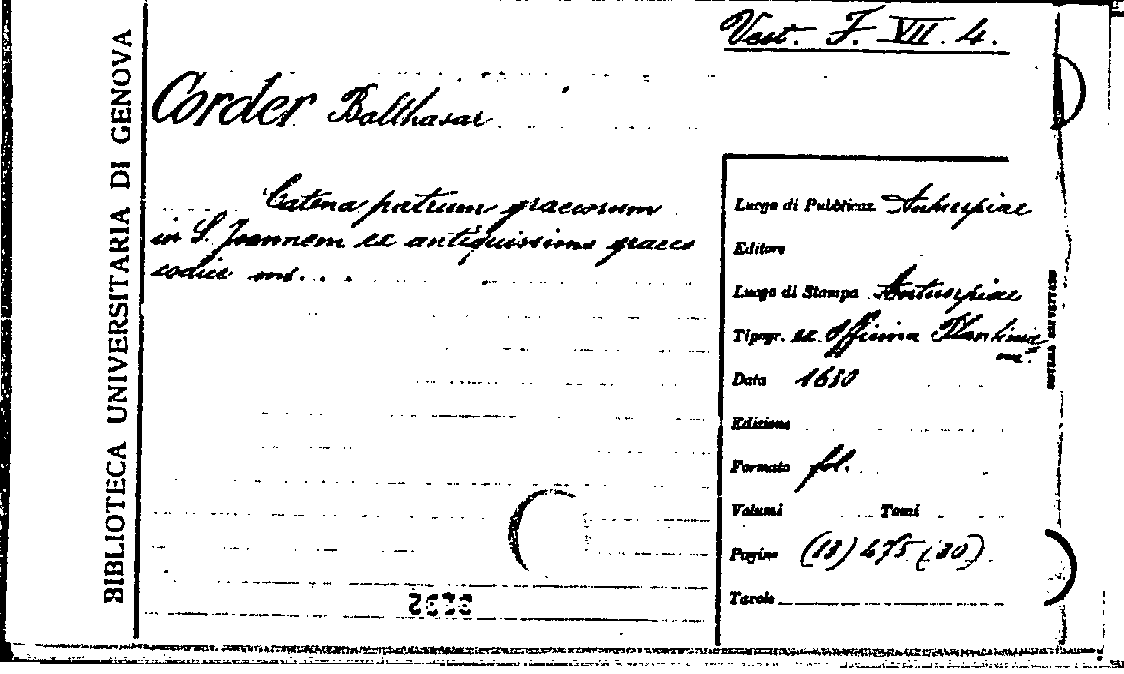 Vest. F. VII. 4.
BIBLIOTECA UNIVERSITARIA DI GENOVA
Corder Balthasar
Catena patrum graecorum
in S. Joannem ex antiquissimo graeco
codice ms. . .
Luogo di Pubblicaz. Antuerpiae
Editore
Luogo di Stampa Antuerpiae
Tipogr. ex Officina Plantinia
na
Data 1630
Edizione
Formato fol.
Volumi Tomi
Pagine (18) 475 (30)
Tavole